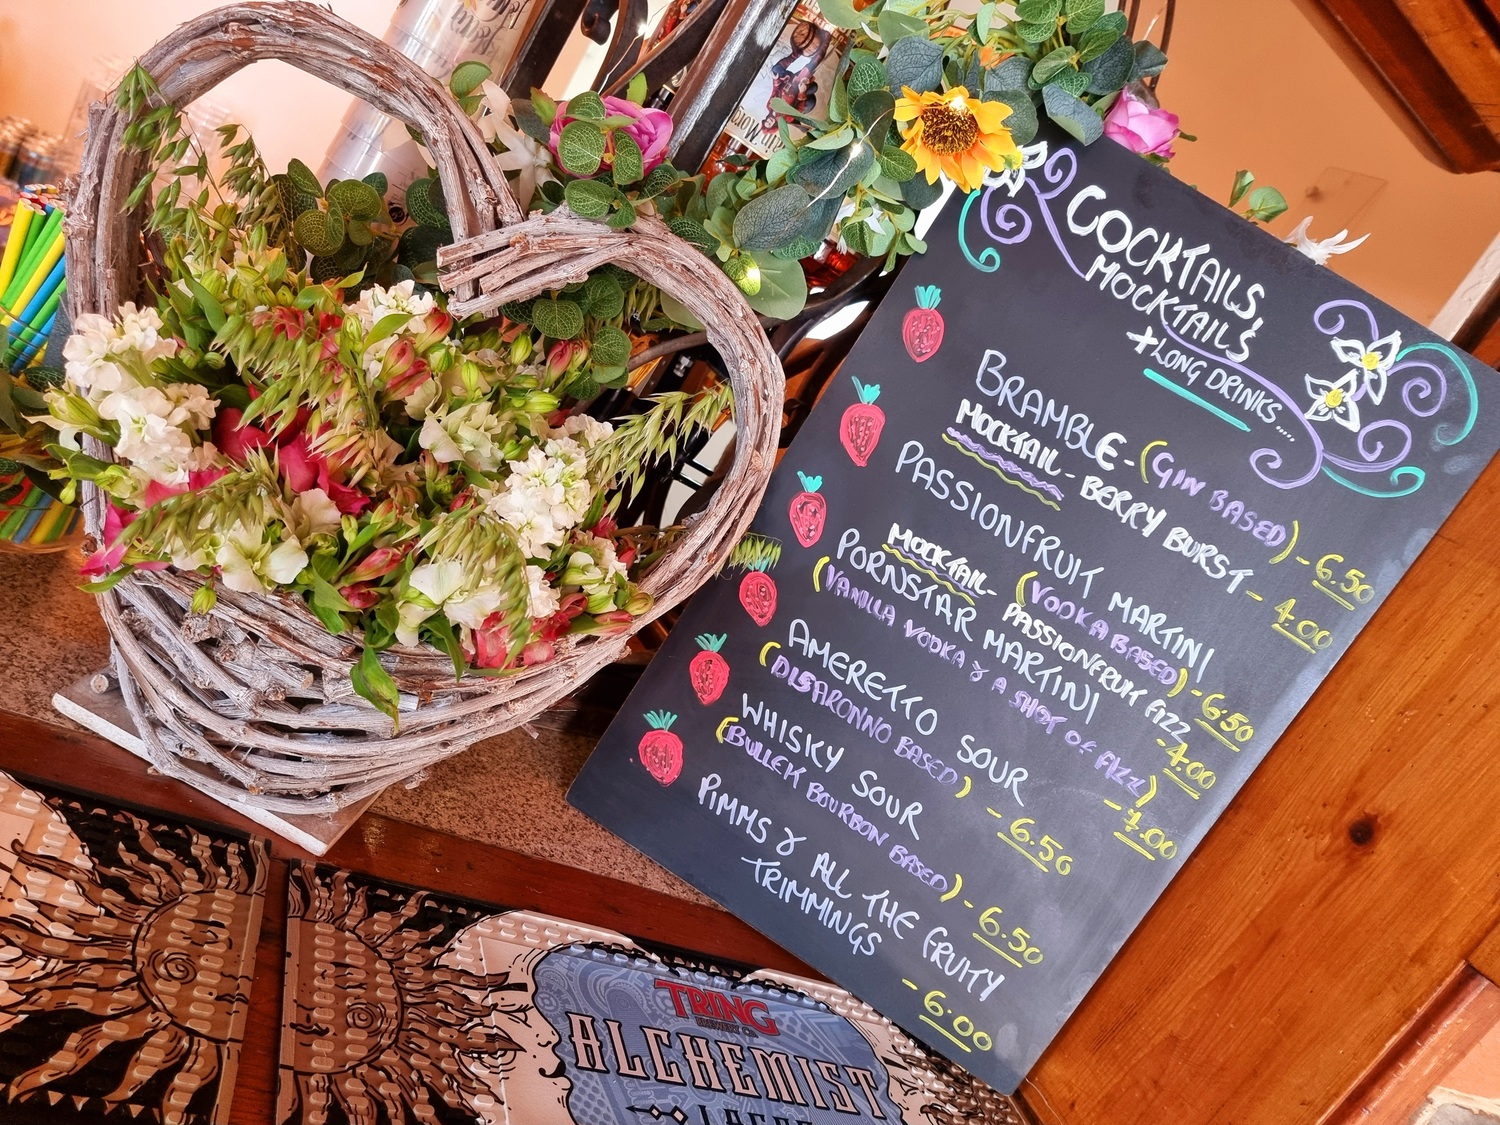 COCKTAILS,
MOCKTAILS
+ LONG DRINKS....
BRAMBLE - (GIN BASED) - 6.50
MOCKTAIL - BERRY BURST - 4.00
PASSIONFRUIT MARTINI
(VODKA BASED) - 6.50
MOCKTAIL - PASSIONFRUIT FIZZ - 4.00
PORNSTAR MARTINI
(VANILLA VODKA & A SHOT OF FIZZ) - 7.00
AMERETTO SOUR
(DISARONNO BASED) - 6.50
WHISKY SOUR
(BULLEK BOURBON BASED) - 6.50
PIMMS & ALL THE FRUITY
TRIMMINGS - 6.00
TRING
BREWERY CO
ALCHEMIST
LAGER